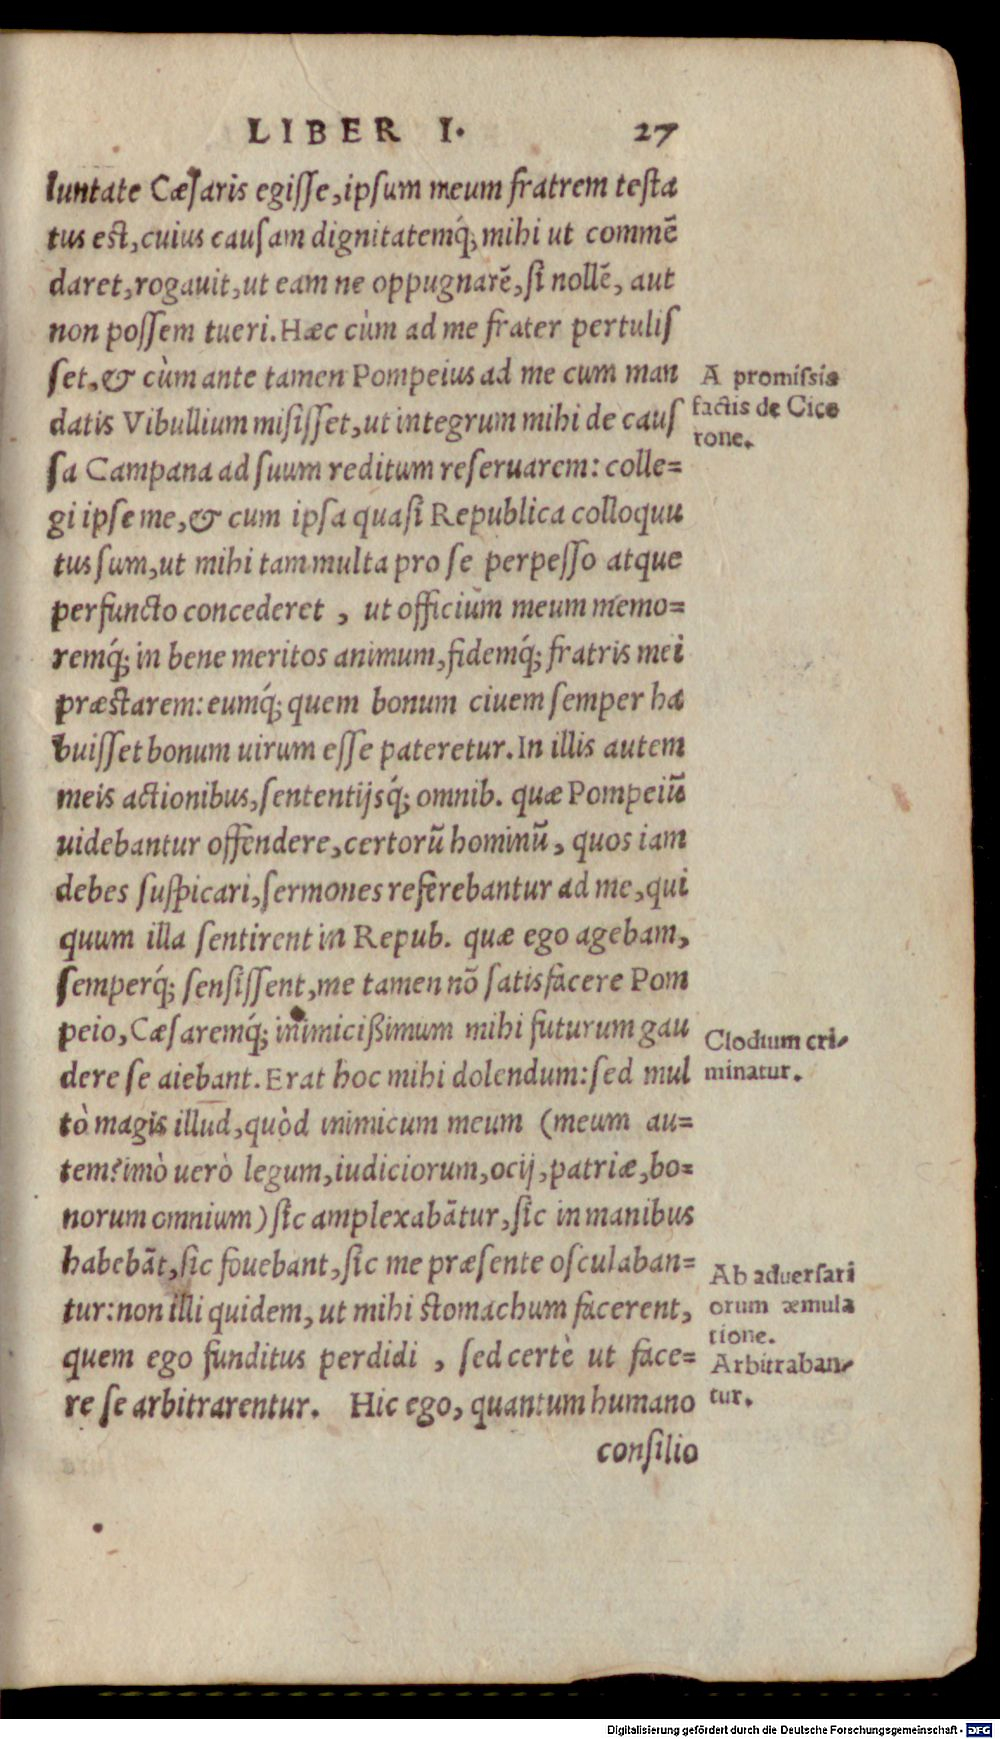 LIBER I. 27
luntate Cæſaris egiſſe, ipſum meum fratrem teſta
tus eſt, cuius cauſam dignitatemq́; mihi ut commē
daret, rogauit, ut eam ne oppugnarē, ſi nollē, aut
non poſſem tueri. Hæc cùm ad me frater pertuliſ
ſet, & cùm ante tamen Pompeius ad me cum man
datis Vibullium miſiſſet, ut integrum mihi de cauſ
ſa Campana ad ſuum reditum reſeruarem: colle=
gi ipſe me, & cum ipſa quaſi Republica colloquu
tus ſum, ut mihi tam multa pro ſe perpeſſo atque
perfuncto concederet , ut officium meum memo=
remq́; in bene meritos animum, fidemq́; fratris mei
præſtarem: eumq́; quem bonum ciuem ſemper ha
buiſſet bonum uirum eſſe pateretur. In illis autem
meis actionibus, ſententijsq́; omnib. quæ Pompeiū
uidebantur offendere, certorū hominū, quos iam
debes ſuſpicari, ſermones referebantur ad me, qui
quum illa ſentirent in Repub. quæ ego agebam,
ſemperq́; ſenſiſſent, me tamen nō ſatisfacere Pom
peio, Cæſaremq́; inimicißimum mihi futurum gau
dere ſe aiebant. Erat hoc mihi dolendum: ſed mul
tò magis illud, quòd inimicum meum (meum au=
tem? imò uerò legum, iudiciorum, ocij, patriæ, bo=
norum omnium) ſic amplexabātur, ſic in manibus
habebāt, ſic fouebant, ſic me præſente oſculaban=
tur: non illi quidem, ut mihi ſtomachum facerent,
quem ego funditus perdidi , ſed certè ut face=
re ſe arbitrarentur. Hic ego, quantum humano
conſilio
A promiſsis
factis de Cice
rone.
Clodium cri-
minatur.
Ab aduerſari
orum æmula
tione.
Arbitraban-
tur.
Digitalisierung gefördert durch die Deutsche Forschungsgemeinschaft - DFG